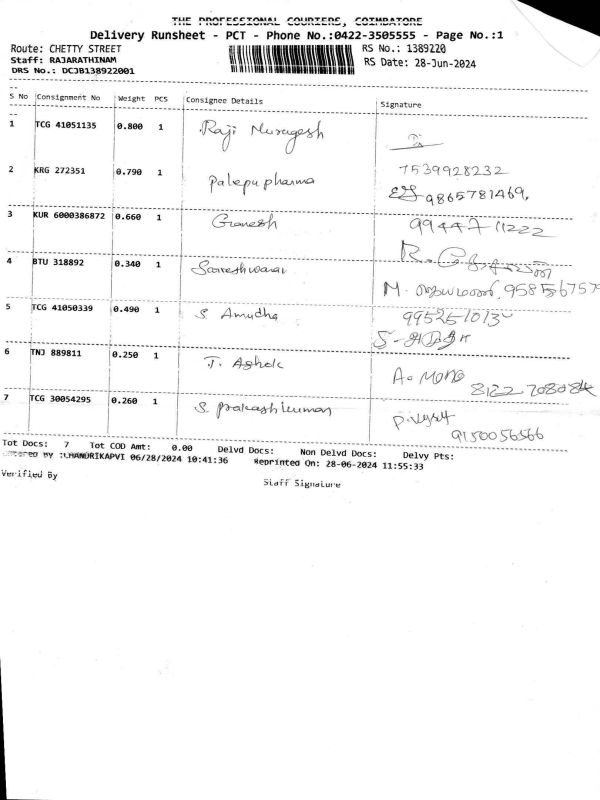 THE PROFESSIONAL COURIERS, COIMBATORE
Delivery Runsheet - PCT - Phone No.:0422-3505555 - Page No.:1
Route: CHETTY STREET
Staff: RAJARATHINAM
DRS No.: DCJB138922001
RS No.: 1389220
RS Date: 28-Jun-2024
S No Consignment No Weight PCS Consignee Details Signature
1 TCG 41051135 0.800 1 Raji Murugesh
7539928232
2 KRG 272351 0.790 1 Palepu pharma
9865781469.
3 KUR 6000386872 0.660 1 Ganesh
99447 11222
4 BTU 318892 0.340 1 Sooreshwarar
M.
5 TCG 41050339 0.490 1 S. Amudha
S-அமுதா
6 TNJ 889811 0.250 1 T. Ashok
A. MONO
8122 708084
7 TCG 30054295 0.260 1 S. Prakashkumar
9150056566
Tot Docs: 7 Tot COD Amt: 0.00 Delvd Docs: Non Delvd Docs: Delvy Pts:
Entered By :CHANDRIKAPVI 06/28/2024 10:41:36 Reprinted On: 28-06-2024 11:55:33
Verified By
Staff Signature